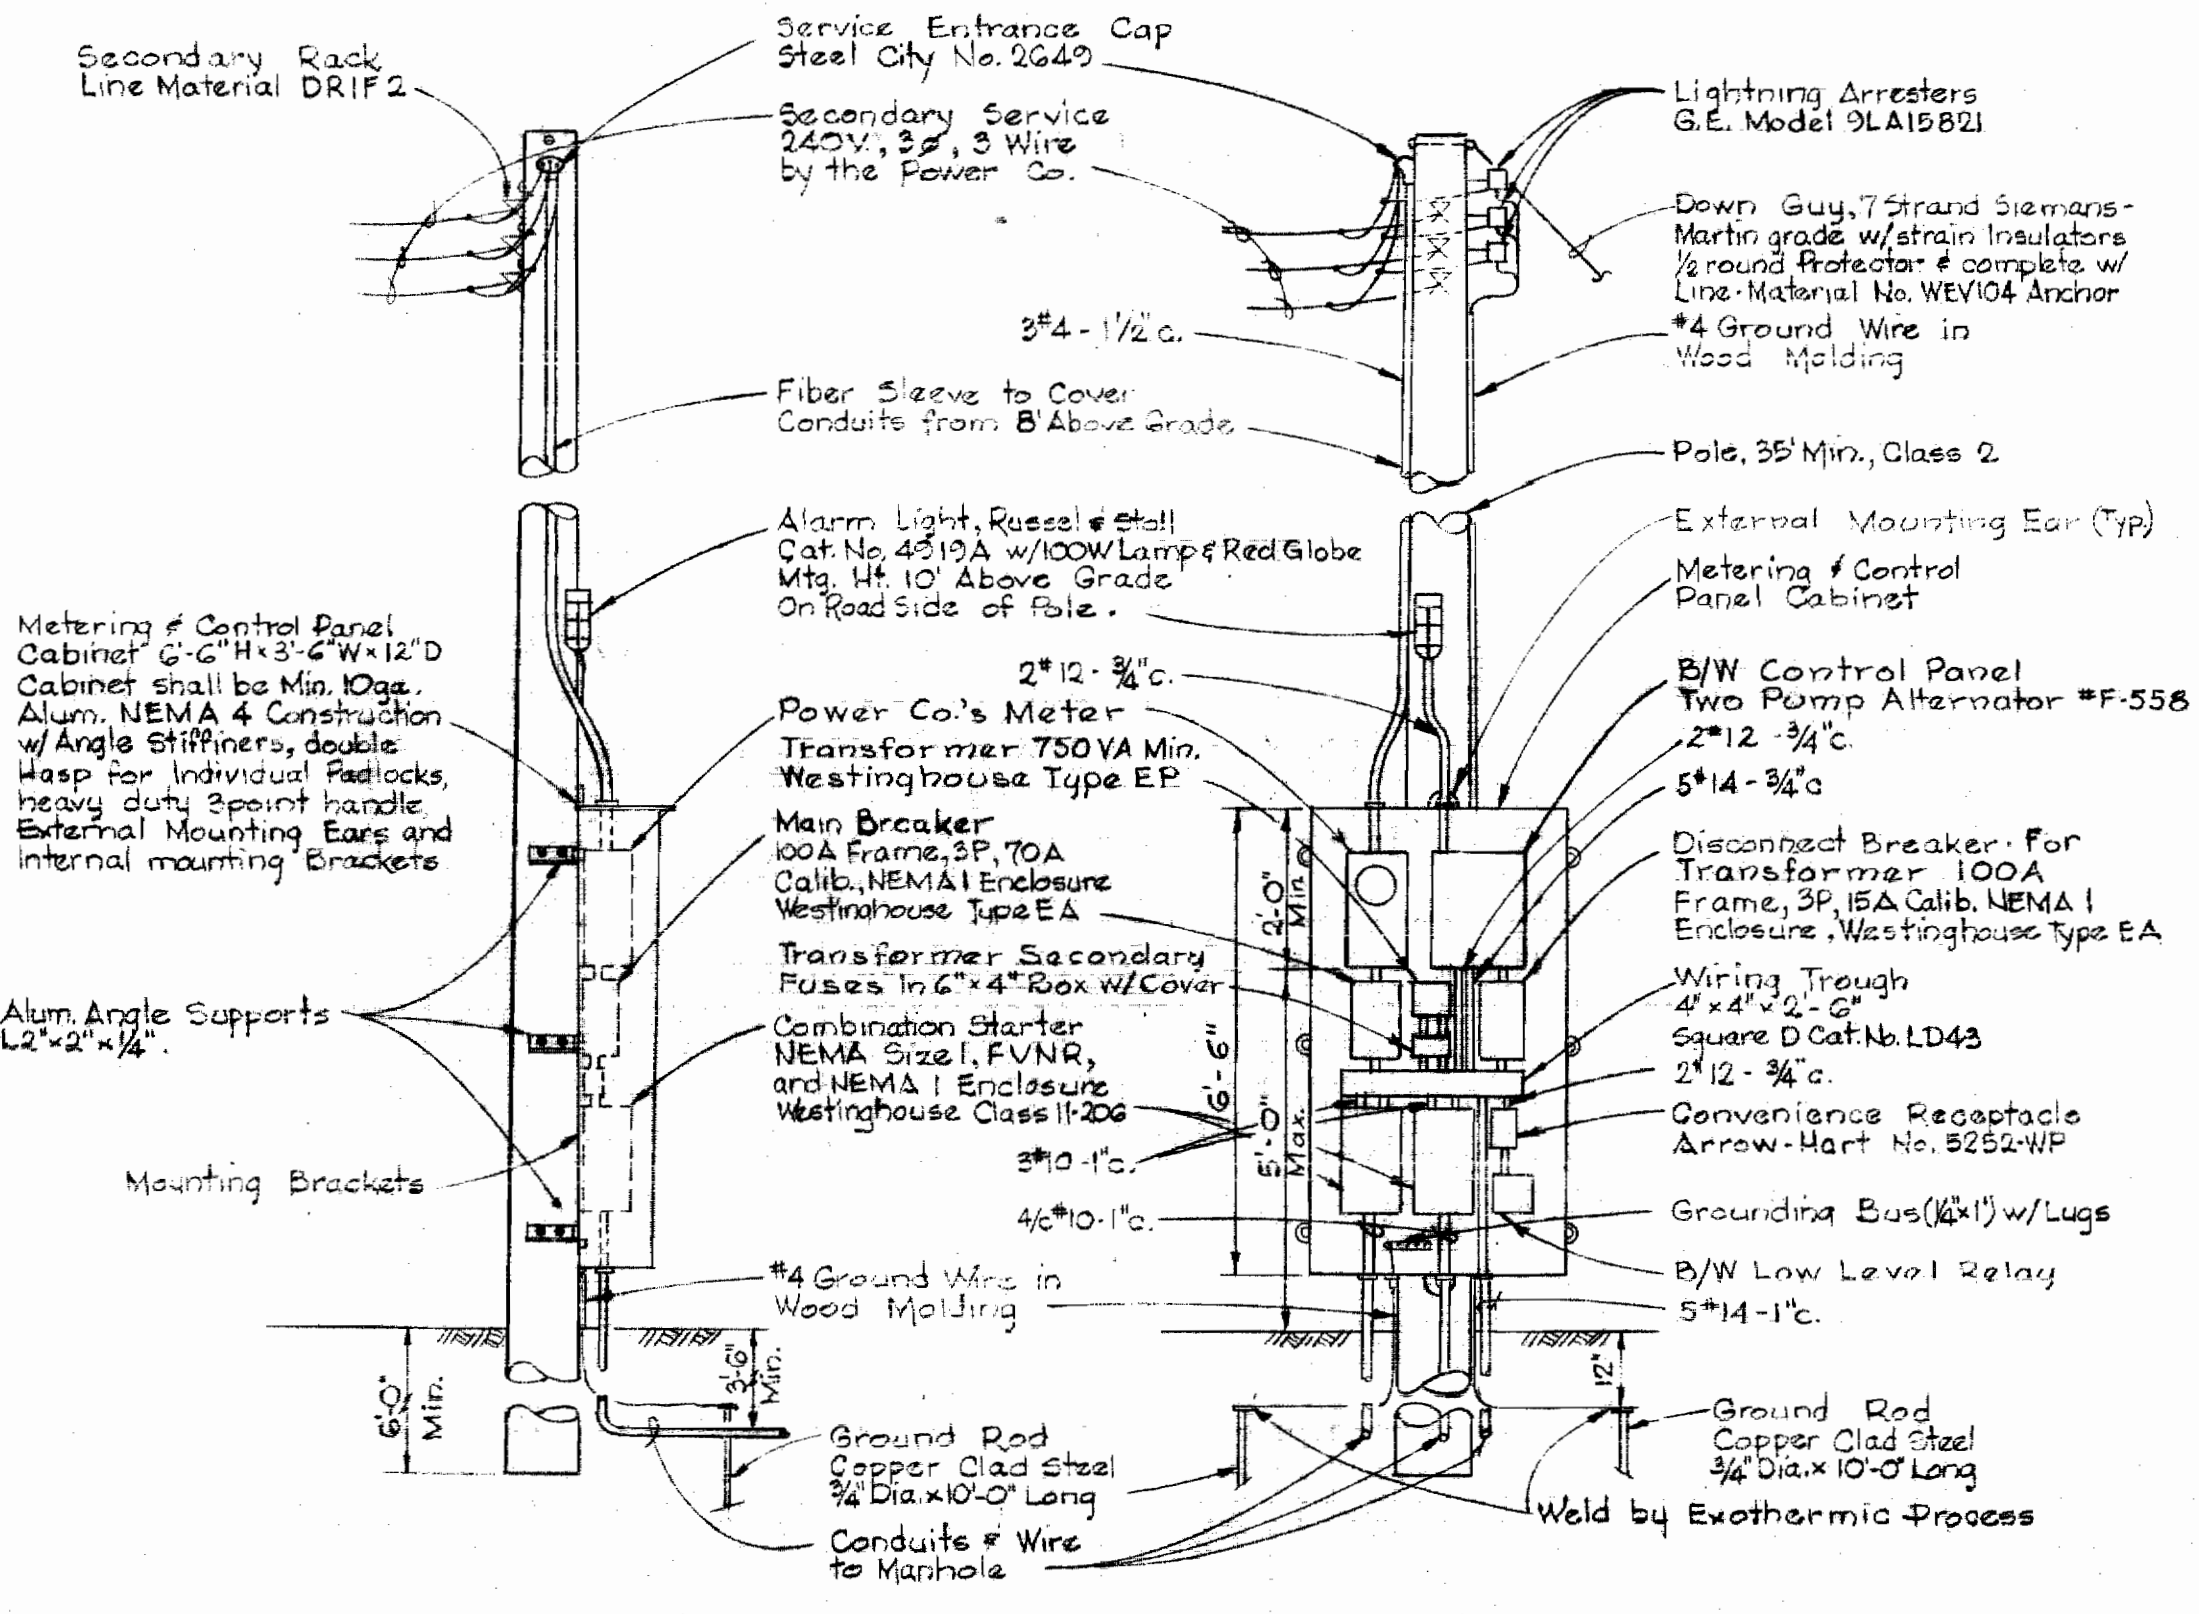 Secondary Rack
Line Material DR1F2
Service Entrance Cap
Steel City No. 2649
Secondary Service
240V., 3ø, 3 Wire
by the Power Co.
Lightning Arresters
G.E. Model 9LA15821
Down Guy, 7 Strand Siemans-
Martin grade w/strain Insulators
1/2 round Protector & complete w/
Line-Material No. WEV104 Anchor
3#4 - 1 1/2"c.
#4 Ground Wire in
Wood Molding
Fiber Sleeve to Cover
Conduits from 8' Above Grade
Pole, 35' Min., Class 2
Alarm Light, Russel & Stoll
Cat. No. 4919A w/100W Lamp & Red Globe
Mtg. Ht. 10' Above Grade
On Road Side of Pole.
External Mounting Ear (Typ.)
Metering & Control
Panel Cabinet
Metering & Control Panel
Cabinet 6'-6"H x 3'-6"W x 12"D
Cabinet shall be Min. 10ga.
Alum. NEMA 4 Construction
w/ Angle Stiffiners, double
Hasp for Individual Padlocks,
heavy duty 3point handle
External Mounting Ears and
internal mounting Brackets
2#12 - 3/4"c.
Power Co.'s Meter
Transformer 750VA Min.
Westinghouse Type EP
B/W Control Panel
Two Pump Alternator #F-558
2#12 - 3/4"c.
5#14 - 3/4"c
Main Breaker
100A Frame, 3P, 70A
Calib., NEMA 1 Enclosure
Westinghouse Type EA
Disconnect Breaker. For
Transformer 100A
Frame, 3P, 15A Calib. NEMA 1
Enclosure, Westinghouse Type EA
2'-0"
Min.
Transformer Secondary
Fuses In 6"x4" Box w/Cover
Wiring Trough
4"x4"x2'-6"
Square D Cat. No. LD43
2#12 - 3/4"c.
Alum. Angle Supports
L2"x2"x1/4".
Combination Starter
NEMA Size 1, FVNR,
and NEMA 1 Enclosure
Westinghouse Class 11-206
6'-6"
5'-0"
Max.
3#10 - 1"c.
Convenience Receptacle
Arrow-Hart No. 5252-WP
Mounting Brackets
4/c#10-1"c.
Grounding Bus (1/4"x1") w/Lugs
#4 Ground Wire in
Wood Molding
B/W Low Level Relay
5#14 - 1"c.
6'-0"
Min.
3'-6"
Min.
12"
Ground Rod
Copper Clad Steel
3/4" Dia. x 10'-0" Long
Ground Rod
Copper Clad Steel
3/4" Dia. x 10'-0" Long
Weld by Exothermic Process
Conduits & Wire
to Manhole